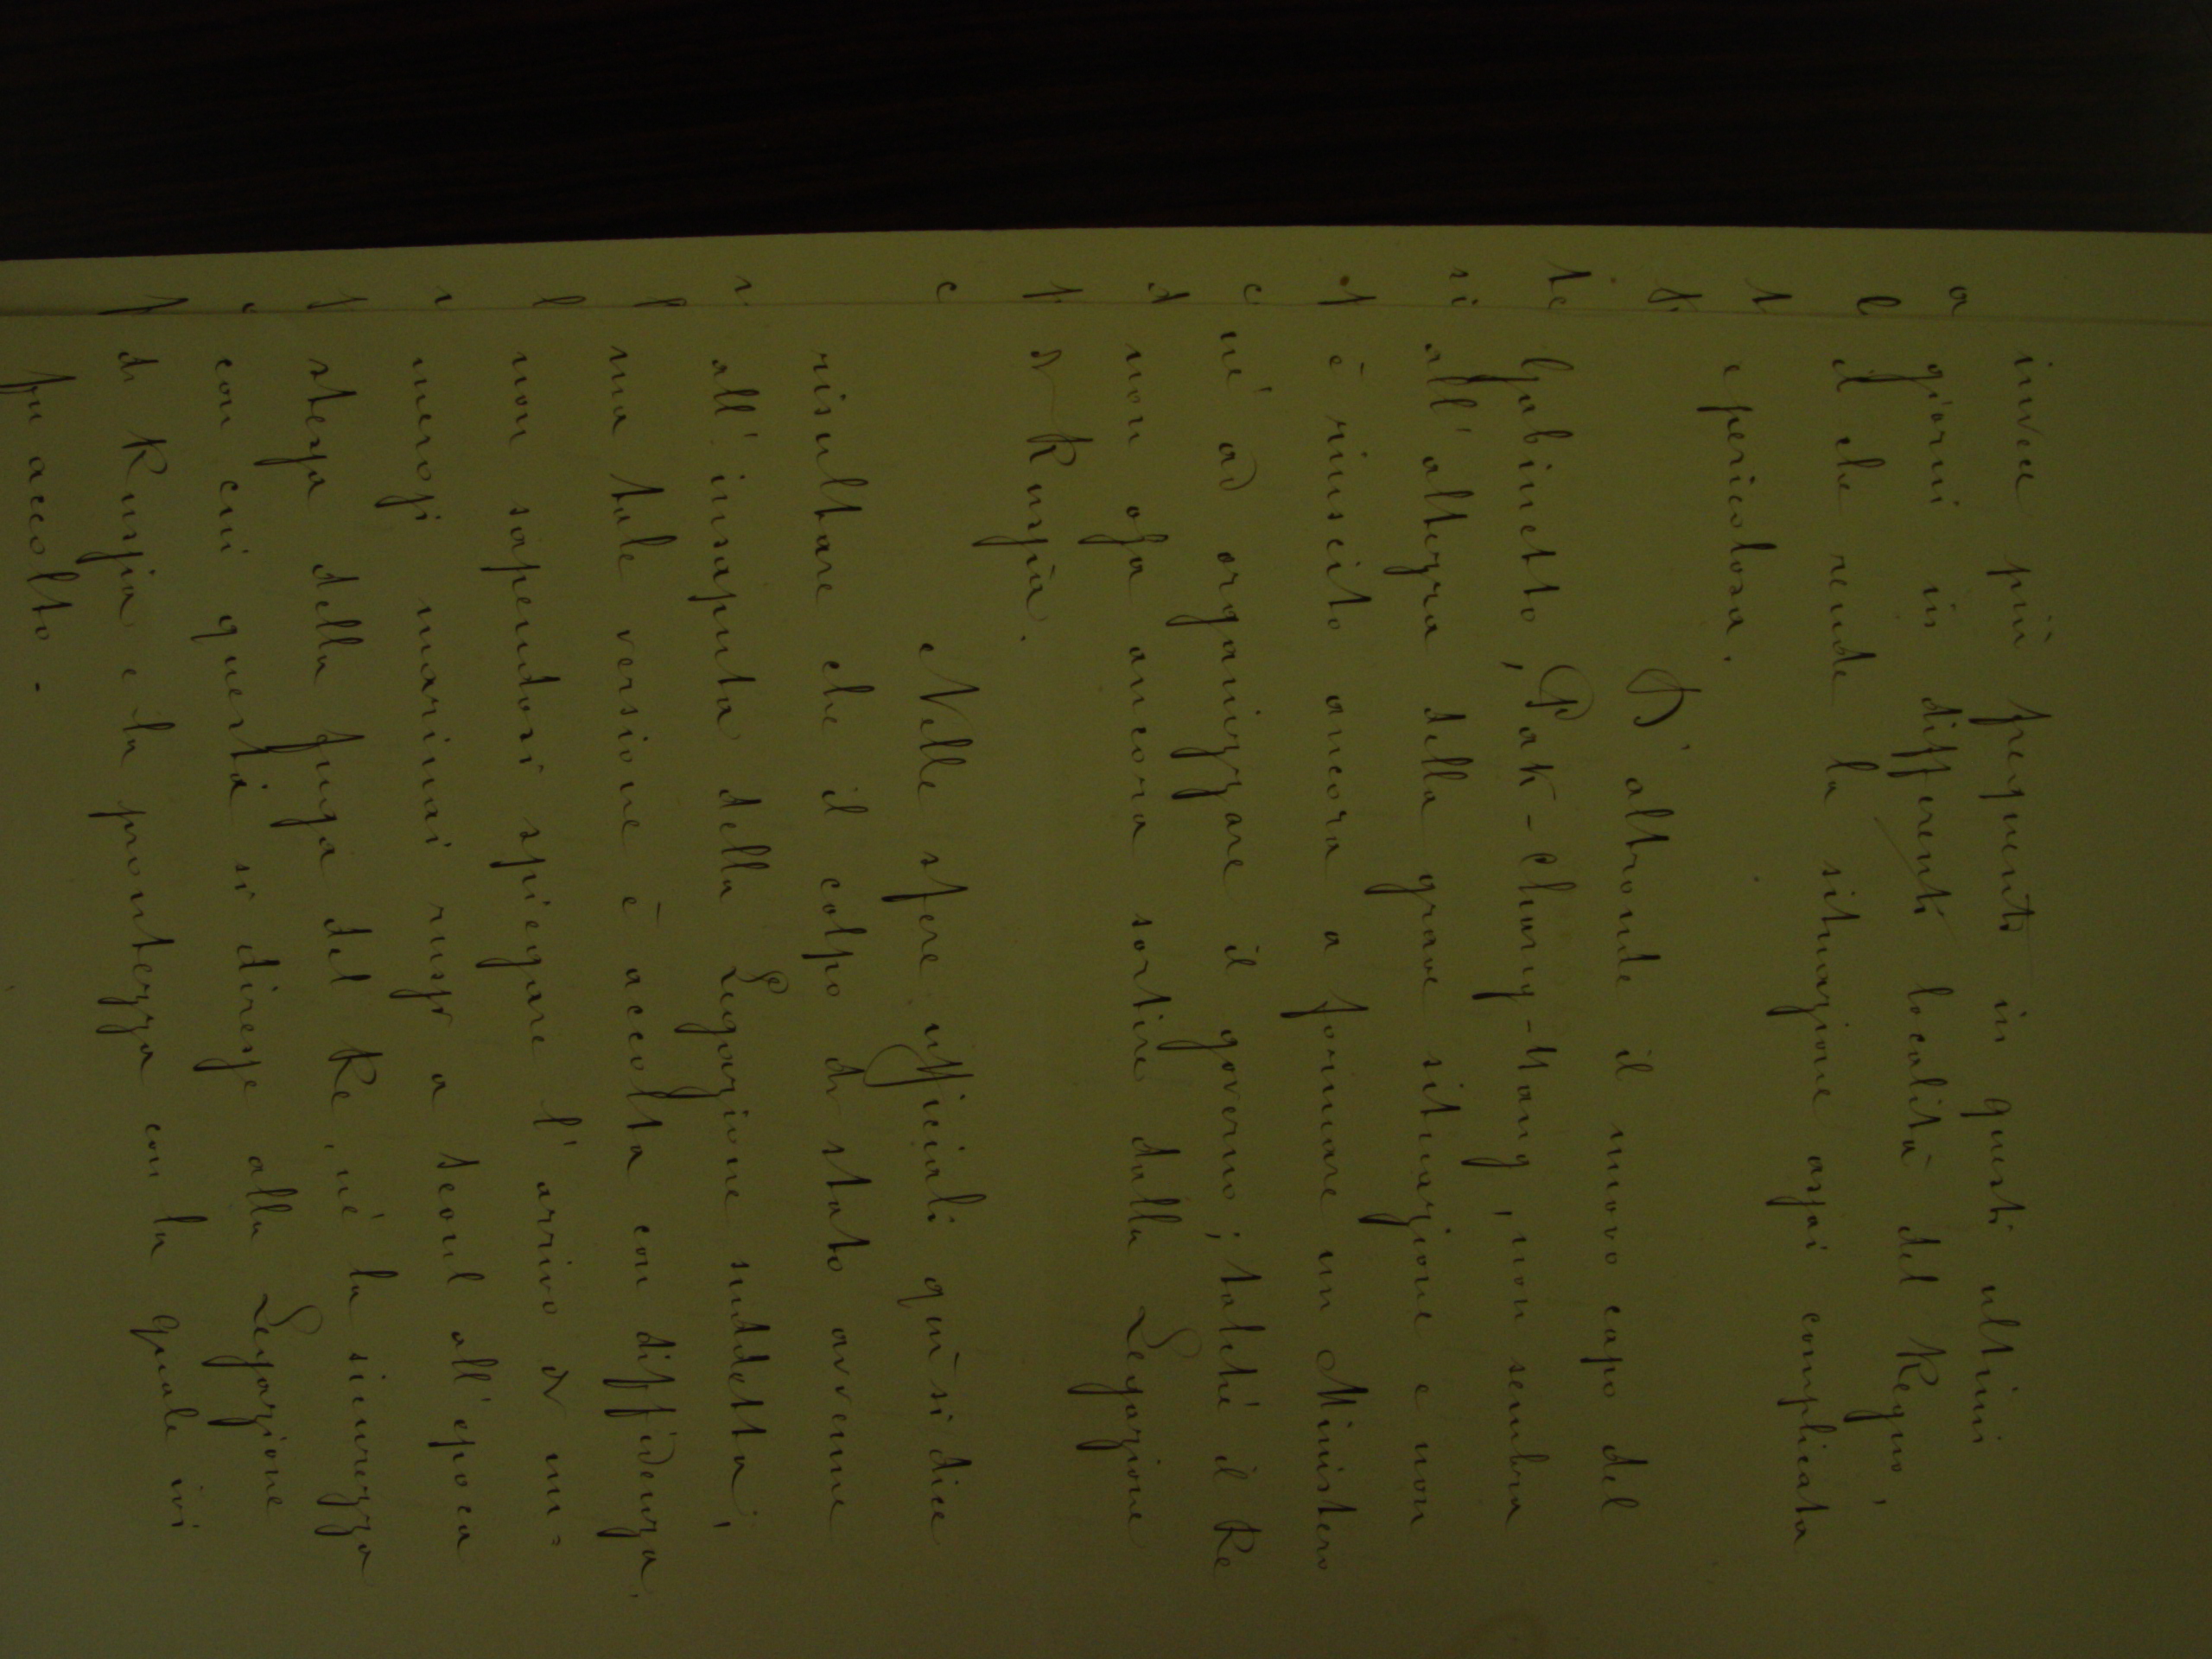 invece più frequenti in questi ultimi
giorni in differenti località del Regno,
il che rende la situazione assai complicata
e pericolosa.
D'altronde il nuovo capo del
Gabinetto, Pak-Chung-Yang, non sembra
all'altezza della grave situazione e non
è riuscito ancora a formare un Ministero
nè ad organizzare il governo; talchè il Re
non osa ancora sortire dalla Legazione
di Russia.
Nelle sfere ufficiali quì si dice
risultare che il colpo di stato avvenne
all'insaputa della Legazione suddetta;
ma tale versione è accolta con diffidenza,
non sapendosi spiegare l'arrivo di nu=
merosi marinai russi a Seoul all'epoca
stessa della fuga del Re, nè la sicurezza
con cui questi si diresse alla Legazione
di Russia e la prontezza con la quale ivi
fu accolto.